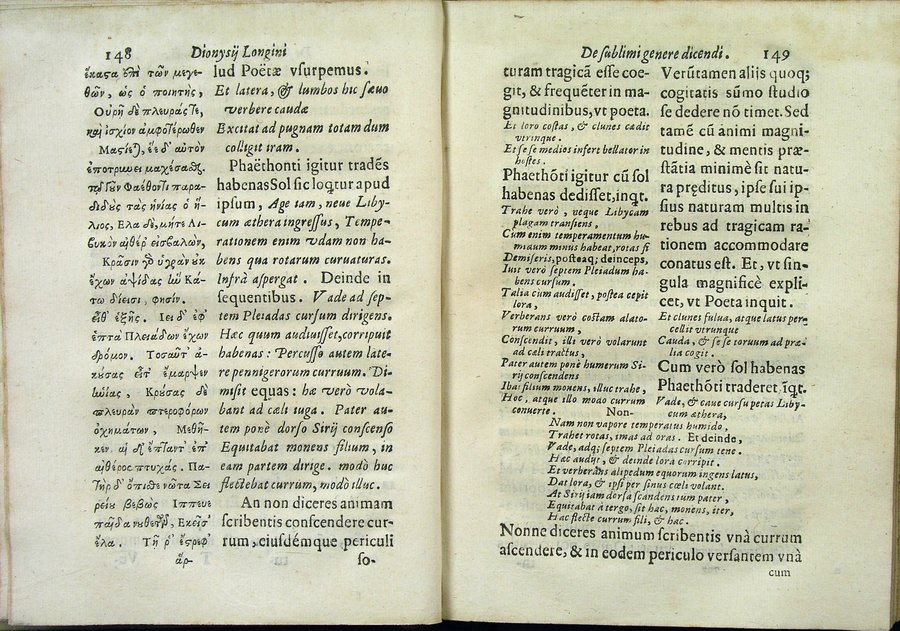 148 Dionysij Longini
ἕκαστα ἐπὶ τῶν μεγε-
θῶν, ὡς ὁ ποιητής,
Οὐρῇ δὲ πλευράς τε,
καὶ ἰσχίον ἀμφοτέρωθεν
Μαστίε), ἑὲ δ' αὐτὸν
ἐποτρύνει μαχέσαθζ.
τῷ γοῦν Φαέθοντι παρα-
διδοὺς τὰς ἡνίας ὁ ἥ-
λιος, Ελα δὲ, μήτε Λι-
βυκὸν αἰθέρ' εἰσβαλών,
Κρᾶσιν γὸ ὑγρὰν ἐκ
ἔχων ἁψῖδας Κά-
τω διείσι, φησίν.
εἶθ' ἑξῆς. Ιει δ' ἐφ'
ἑπτὰ Πλειάδων ἔχων
δρόμον. Τοσαῦτ' ἀ-
κούσας εἶτ' ἔμαρψεν
ἡνίας, Κρούσας δὲ
πλευρὰν πτεροφόρων
ὀχημάτων, Μεθῆ-
κεν. αἱ δ' ἔπταντ' ἐπ'
αἰθέρος πτυχάς. Πα-
τὴρ δ' ὄπιθε νῶτα Σει
ρείου βεβὼς Ιππευε
παῖδα νουθετῶν, Εκεῖσ'
ἔλα. Τῇ ῥ' ἔστρεφ'
ἅρ-
lud Poëtæ vsurpemus.
Et latera, & lumbos hic sæuo
verbere caudæ
Excitat ad pugnam totam dum
colligit iram.
Phaëthonti igitur tradẽs
habenas Sol sic loq̃tur apud
ipsum, Age tam, neue Liby-
cum æthera ingressus, Tempe-
rationem enim vdam non ha-
bens qua rotarum curuaturas.
Infrà aspergat. Deinde in
sequentibus. Vade ad sep-
tem Pleiadas cursum dirigens.
Hæc quum audiuisset, corripuit
habenas: Percusso autem late-
re pennigerorum curruum. Di-
misit equas: hæ verò vola-
bant ad cæli iuga. Pater au-
tem ponè dorso Sirij conscenso
Equitabat monens filium, in
eam partem dirige. modò huc
flectebat currum, modò illuc.
An non diceres animam
scribentis conscendere cur-
rum, eiusdémque periculi
so-
De sublimi genere dicendi. 149
turam tragicã esse coe-
git, & frequẽter in ma-
gnitudinibus, vt poeta.
Et loro costas, & clunes cadit
vtrinque.
Et se se medios infert bellator in
hostes.
Phaethõti igitur cũ sol
habenas dedisset, inqt.
Trahe verò, neque Libycam
plagam transiens,
Cum enim temperamentum hu-
midum minus habeat, rotas si
Demiseris, posteaq; deinceps,
Iuit verò septem Pleiadum ha-
bens cursum.
Talia cum audisset, postea cepit
lora,
Verberans verò costam alato-
rum curruum,
Conscendit, illi verò volarunt
ad cæli tractus,
Pater autem ponè humerum Si-
rij conscendens
Ibat filium monens, illuc trahe,
Hoc, atque illo modo currum
conuerte. Non-
Verũtamen alijs quoq;
cogitatis sũmo studio
se dedere nõ timet. Sed
tamẽ cũ animi magni-
tudine, & mentis præ-
stãtia minimè sit natu-
ra pręditus, ipse sui ip-
sius naturam multis in
rebus ad tragicam ra-
tionem accommodare
conatus est. Et, vt sin-
gula magnificè expli-
cet, vt Poeta inquit.
Et clunes fulua, atque latus per-
cellit vtrunque
Cauda, & se se toruum ad præ-
lia cogit.
Cum verò sol habenas
Phaethõti traderet, iqt.
Vade, & caue cursu petas Liby-
cum æthera,
Nam non vapore temperatus humido,
Trahet rotas, imas ad oras. Et deinde,
Vade, adq; septem Pleiadas cursum tene.
Hæc audijt, & deinde lora corripit.
Et verberans alipedum equorum ingens latus,
Dat lora, & ipsi per sinus cæli volant.
At Sirij iam dorsa scandens tum pater,
Equitabat a tergo, sit hac, monens, iter,
Hac flecte currum fili, & hac.
Nonne diceres animum scribentis vnà currum
ascendere, & in eodem periculo versantem vnà
cum